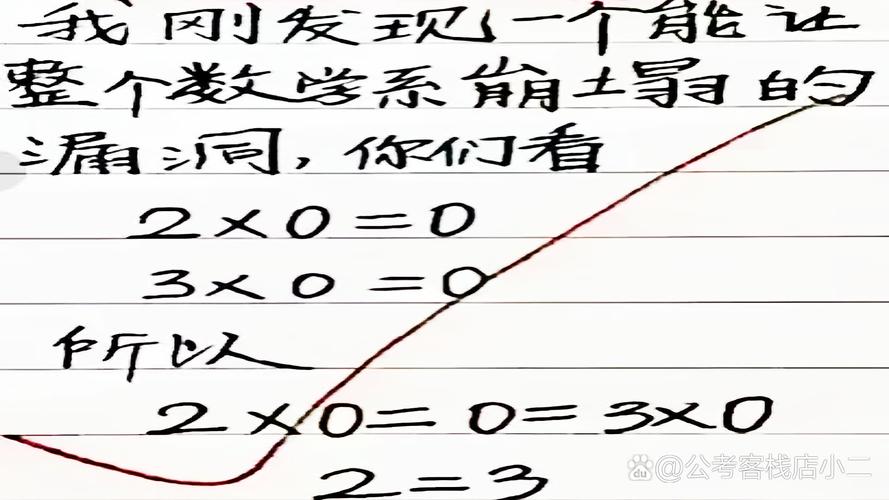 我刚发现一个能让
整个数学系崩塌的
漏洞，你们看
2×0=0
3×0=0
所以
2×0=0=3×0
2=3
Bai du @公考客栈店小二